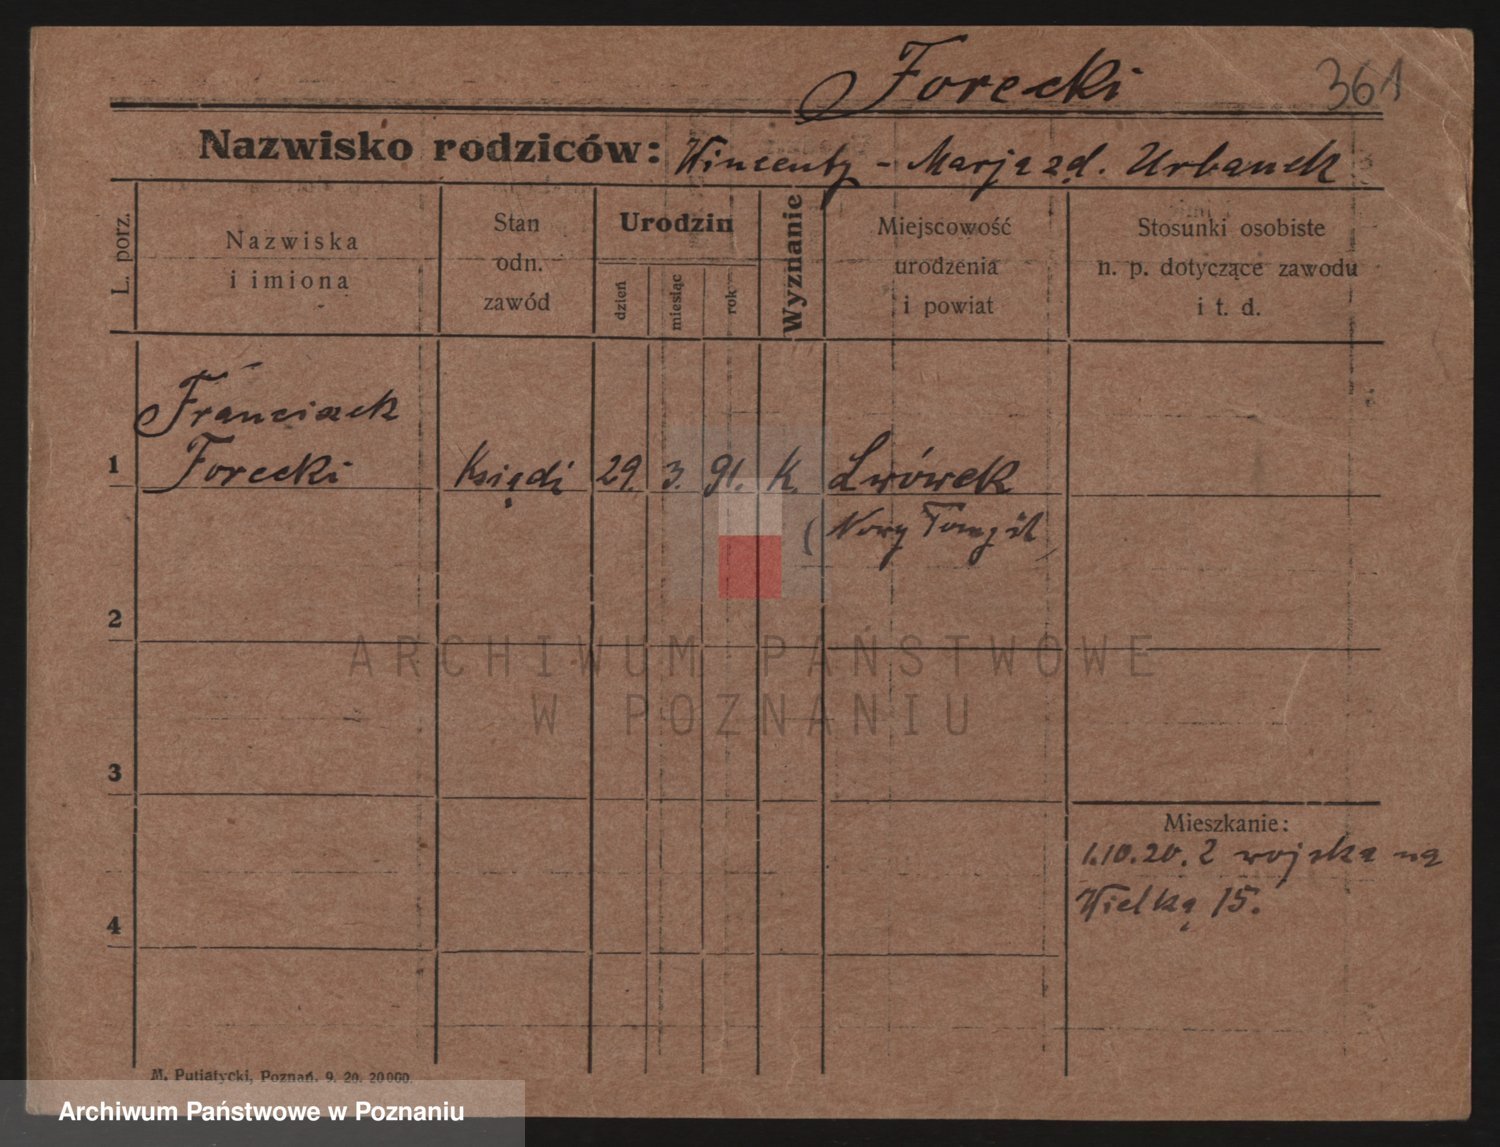 Forecki 361
Nazwisko rodziców: Wincenty - Marja zd. Urbanek
L. porz.
Nazwiska
i imiona
Stan
odn.
zawód
Urodzin
dzień
miesiąc
rok
Wyznanie
Miejscowość
urodzenia
i powiat
Stosunki osobiste
n. p. dotyczące zawodu
i t. d.
Franciszek
1 Forecki Ksiądz 29. 3. 91. K. Lwówek
(Nowy Tomyśl)
2
ARCHIWUM PAŃSTWOWE
W POZNANIU
3
Mieszkanie:
1.10.20. Z wojska na
Wielką 15.
4
M. Putiatycki, Poznań. 9. 20. 20000.
Archiwum Państwowe w Poznaniu